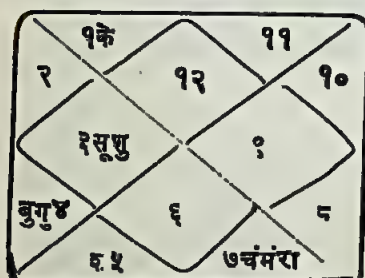 १के ११
२ १२ १०
३सूशु ९
बुगु४ ६ ८
५ ७चंमंरा